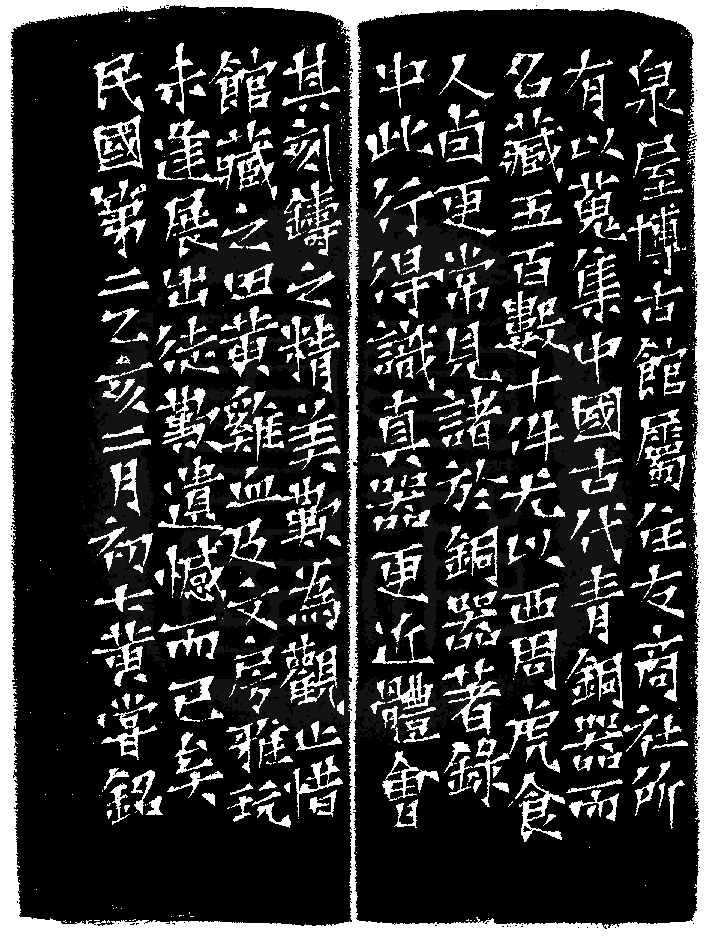 泉屋博古館屬住友商社所
有以蒐集中國古代青銅器而
名藏五百數十件尤以西周虎食
人卣更常見諸於銅器著錄
中此行得識真器更近體會
其刻鑄之精美歎為觀止惜
館藏之田黃雞血及文房雅玩
未逢展出徒歎遺憾而已矣
民國第二乙亥二月初七黃嘗銘